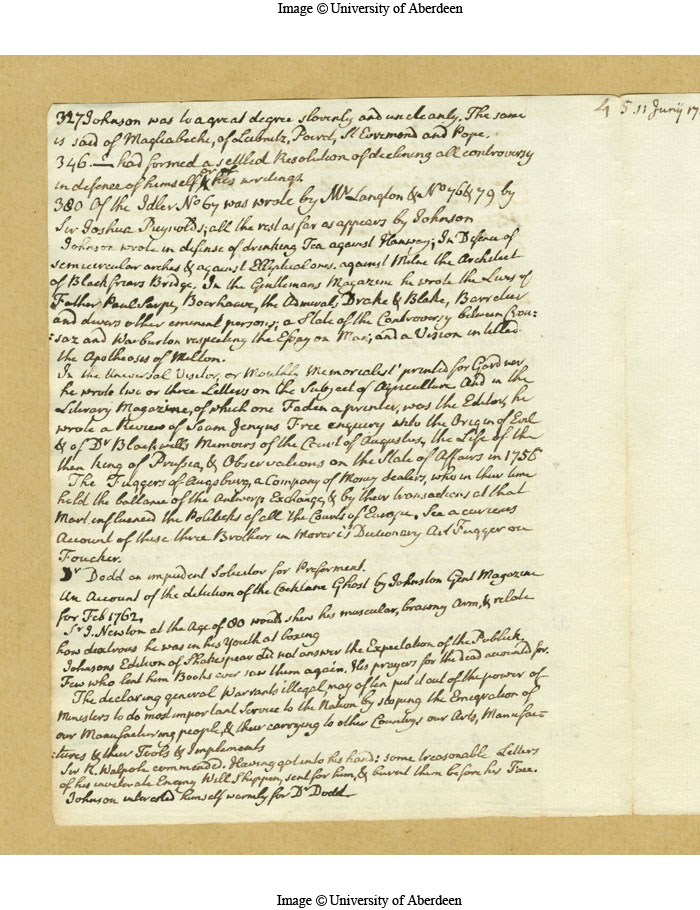 Image © University of Aberdeen
4 5. 11 Junij 17
327 Johnson was to a great degree slovenly and uncleanly. The same
is said of Magliabechi, of Leibnitz, Poiret, St Evremond and Pope.
346. — had formed a settled Resolution of declining all controversy
in defense of himself or of his writings.
380 Of the Idler No 67 was wrote by Mr Langton & No 76 & 79 by
Sir Joshua Reynolds; all the rest as far as appears by Johnson
Johnson wrote in defense of drinking Tea against Hanway; In Defence of
semicircular arches & against Elliptical ones. against Milne the Architect
of Black friars Bridge. In the Gentlemans Magazine he wrote the Lives of
Father Paul Sarpi, Boerhaave, the Admirals, Drake & Blake, Barretier
and divers other eminent persons; a State of the Controversy between Crou-
:saz and Warburton respecting the Essay on Man; and a Vision intitled
the Apotheoses of Milton.
In the Universal Visitor, or Monthly Memorialist printed for Gardner
he wrote two or three Letters on the Subject of Agriculture And in the
Literary Magazine, of which one Faden a printer, was the Editor, he
wrote a Review of Soam Jenyns Free enquiry into the Origin of Evil
& of Dr Blackwells Memoirs of the Court of Augustus, the Life of the
then King of Prussia, & Observations on the State of Affairs in 1756
The Fuggers of Augsburg, a Company of Money dealers, who in their time
held the ballance of the Antwerp Exchange, & by their transactions at that
Mart influenced the Politicks of all the Courts of Europe. See a curious
Account of these three Brothers in Moreri's Dictionary Art Fugger ou
Foucker.
Dr Dodd an impudent Solicitor for Preferment.
An Account of the detection of the Cocklane Ghost by Johnston Gent Magazine
for Feb 1762,
Sr I. Newton at the Age of 80 would shew his muscular, brawny Arm, & relate
how dextrous he was in his Youth at boxing
Johnsons Edition of Shakespear did not answer the Expectation of the Publick.
Few who lent him Books ever saw them again. His prayers for the dead accounted for.
The declaring general Warrants illegal may often put it out of the power of
Ministers to do most important Service to the Nation by stoping the Emigration of
our Manufacturing people, & their carrying to other Countrys our Arts, Manufac-
:tures & their Tools & Implements
Sir R. Walpole commended. Having got into his hands some treasonable Letters
of his inveterate Enemy Will Shippen, sent for him, & burnt them before his Face.
Johnson interested himself warmly for Dr Dodd
Image © University of Aberdeen